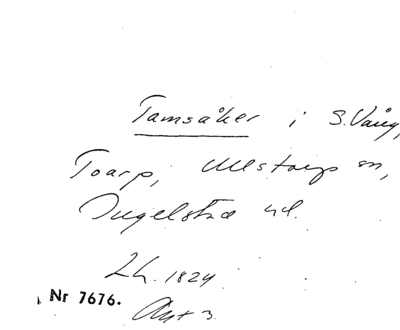 Tamsåker i S. Vång,
Toarp, Ullstorps sn,
Ingelstad hd.
Lh. 1824
Nr 7676.
Akt 3.